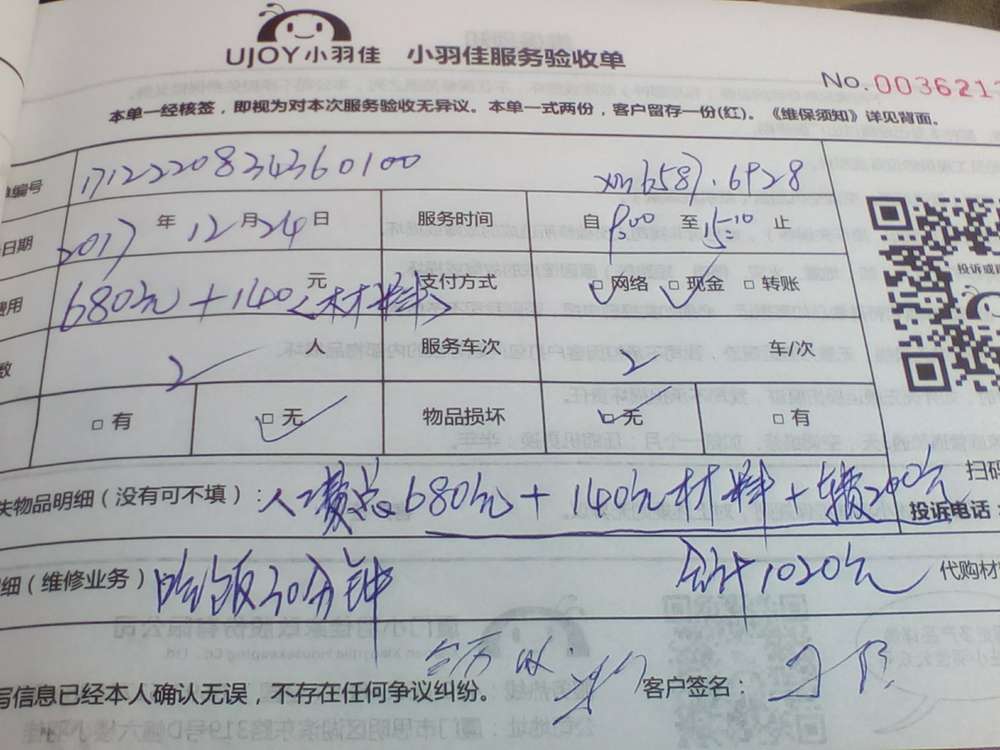 UJOY小羽佳 小羽佳服务验收单
No.003621
本单一经核签，即视为对本次服务验收无异议。本单一式两份，客户留存一份(红)。《维保须知》详见背面。
编号 1712220834360100
日期 2017年12月24日 服务时间 自9:00至15:10止
费用 680元+140<材料> 元 支付方式 网络 现金 转账
数 2人 服务车次 2车/次
有 无 物品损坏 无 有
失物品明细（没有可不填）：人工费总680元+140元材料+ 200元
扫码
投诉电话：
细（维修业务）吃饭30分钟 合计1020元 代购材
写信息已经本人确认无误，不存在任何争议纠纷。 客户签名：